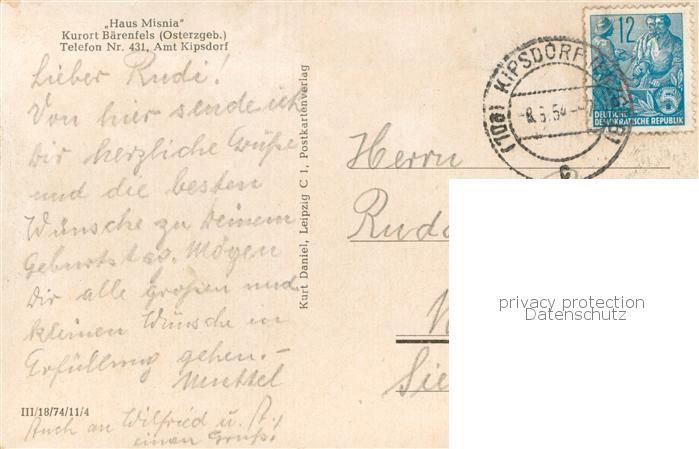 „Haus Misnia"
Kurort Bärenfels (Osterzgeb.)
Telefon Nr. 431, Amt Kipsdorf
Lieber Rudi!
Von hier sende ich
Dir herzliche Grüße
und die besten
Wünsche zu Deinem
Geburtstag. Mögen
Dir alle großen und
kleinen Wünsche in
Erfüllung gehen.-
Muttel
III/18/74/11/4
Auch an Wilfried u.
einen Gruß!
Kurt Daniel, Leipzig C 1, Postkartenverlag
KIPSDORF
(10b)
54
12
5
DEUTSCHE
DEMOKRATISCHE REPUBLIK
Herrn
privacy protection
Datenschutz